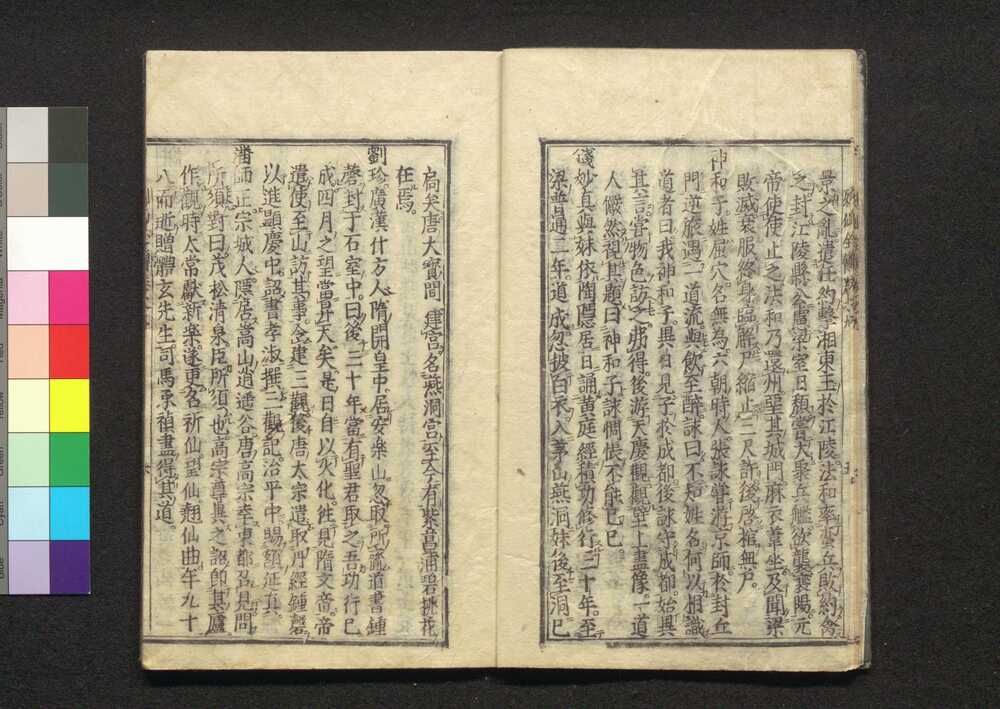 景之亂遣任約擊湘東王於江陵法和率蠻兵敗約禽
之封江陵縣公盧
帝使使止之法和乃還州堊其城門麻衣葦坐及聞梁
敗滅衰服終身臨解尸縮止三尺許後啓棺無尸
神和子姓屈穴名無為六朝時人張詠嘗游京師於封丘
門逆旅遇一道流與飲至醉詠曰不知姓名何以相識
道者曰我神和子異日見子於成都後詠守成都始異
其言嘗物色訪之弗得後游天慶觀觀壁上畫像一道
人儼然視其題曰神和子詠惆悵不能已已
錢妙真與妹依陶隱居日誦黃庭經積功修行三十年至
梁普通二年道成忽披白衣入茅山燕洞妹後至洞已
扃矣唐天寶間建宮名燕洞宮至今有紫菖蒲碧桃花
在焉
劉珍廣漢什方人隋開皇中居安樂山忽取所誦道書鍾
磬封于石室中曰後三十年當有聖君取之吾功行已
成四月之望當昇天矣是日自以火化往見隋文帝帝
遣使至山訪其事令建三觀後唐太宗遣取丹經鍾磬
以進顯慶中詔書孝淑撰三觀記治平中賜額延真
潘師正宗城人隱居嵩山逍遙谷唐高宗幸東都召見問
所須對曰茂松清泉臣所須也高宗尊異之詔即其廬
作觀時太常獻新樂遂更名祈仙望仙翹仙曲年九十
八而逝贈體玄先生司馬承禎盡得其道